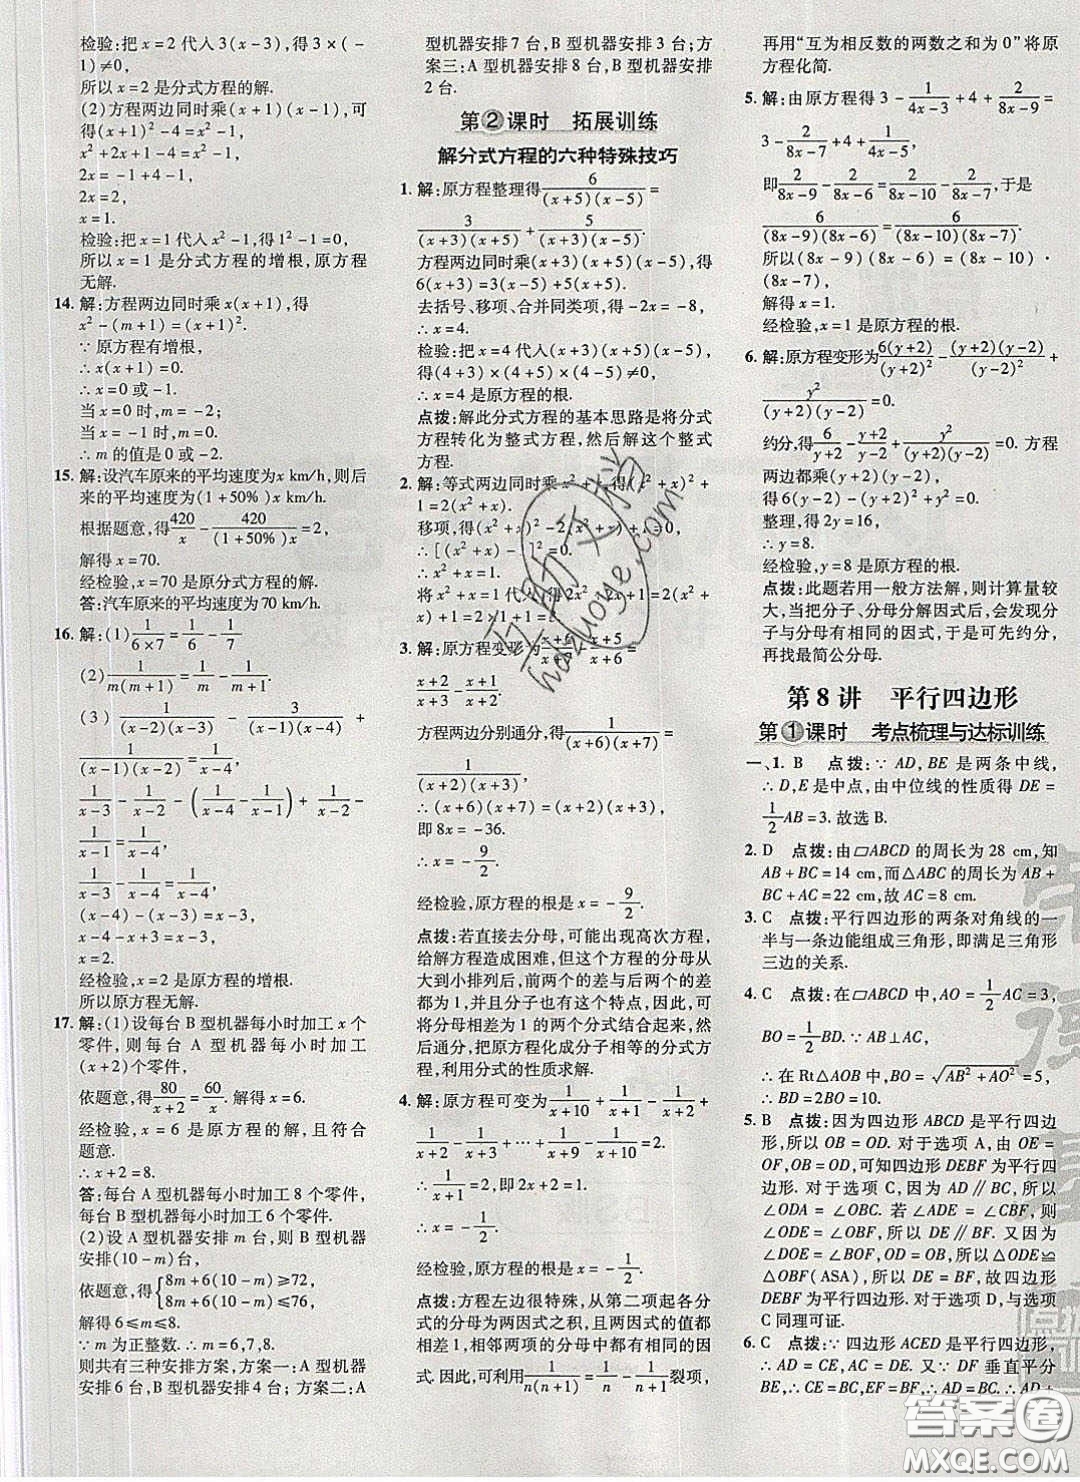 检验:把 x=2 代入 3(x-3),得 3×(-
1)≠0,
所以 x=2 是分式方程的解.
(2)方程两边同时乘(x+1)(x-1),可
得(x+1)²-4=x²-1,
x²+2x+1-4=x²-1,
2x=-1-1+4,
2x=2,
x=1.
检验:把 x=1 代入 x²-1,得 1²-1=0,
所以 x=1 是分式方程的增根,原方程
无解.
14. 解:方程两边同时乘 x(x+1),得
x²-(m+1)=(x+1)².
∵ 原方程有增根,
∴ x(x+1)=0.
∴ x=0 或-1.
当 x=0 时,m=-2;
当 x=-1 时,m=0.
∴ m 的值是 0 或-2.
15. 解:设汽车原来的平均速度为x km/h,则后
来的平均速度为(1+50%)x km/h.
根据题意,得420/x-420/((1+50%)x)=2,
解得 x=70.
经检验,x=70 是原分式方程的解.
答:汽车原来的平均速度为 70 km/h.
16. 解:(1)1/(6×7)=1/6-1/7
(2)1/(m(m+1))=1/m-1/(m+1)
(3)1/((x-2)(x-3))-1/((x-1)(x-3))+
1/((x-1)(x-2))=1/(x-4),
1/(x-3)-1/(x-2)-1/2(1/(x-3)-1/(x-1))+1/(x-2)-
1/(x-1)=1/(x-4),
1/(x-3)-1/(x-4)=0.
(x-4)-(x-3)=0.
x-4-x+3=0.
x=2.
经检验,x=2 是原方程的增根.
所以原方程无解.
17. 解:(1)设每台 B 型机器每小时加工 x 个
零件,则每台 A 型机器每小时加工
(x+2)个零件,
依题意,得80/(x+2)=60/x. 解得 x=6.
经检验,x=6 是原方程的解,且符合
题意.
∴ x+2=8.
答:每台 A 型机器每小时加工 8 个零件,
每台 B 型机器每小时加工 6 个零件.
(2)设 A 型机器安排 m 台,则 B 型机器
安排(10-m)台,
依题意,得{8m+6(10-m)≥72,
8m+6(10-m)≤76,
解得 6≤m≤8.
∵ m 为正整数,∴ m=6,7,8.
则共有三种安排方案,方案一:A 型机器
安排 6 台,B 型机器安排 4 台;方案二:A
型机器安排 7 台,B 型机器安排 3 台;方
案三:A 型机器安排 8 台,B 型机器安排
2 台.
第②课时 拓展训练
解分式方程的六种特殊技巧
1. 解:原方程整理得6/((x+5)(x-5))=
3/((x+3)(x+5))+5/((x+3)(x-5)).
方程两边同时乘(x+3)(x+5)(x-5),得
6(x+3)=3(x-5)+5(x+5).
去括号、移项、合并同类项,得-2x=-8,
∴ x=4.
检验:把 x=4 代入(x+3)(x+5)(x-5),
得(4+3)×(4+5)×(4-5)≠0.
∴ x=4 是原方程的根.
点拨:解此分式方程的基本思路是将分式
方程转化为整式方程,然后解这个整式
方程.
2. 解:等式两边同时乘 x²+x,得(x²+x)²+
1=2(x²+x).
移项,得(x²+x)²-2(x²+x)+1=0,
∴ [(x²+x)-1]²=0.
∴ x²+x=1.
∴ 2x²+2x+1=2(x²+x)+1=2(x²+
x)+1=2×1+1=3.
3. 解:原方程变形为(x+6)/(x+7)-(x+5)/(x+6)=
(x+2)/(x+3)-(x+1)/(x+2).
方程两边分别通分,得1/((x+7)(x+6))=
1/((x+2)(x+3)),
∴(x+6)(x+7)=(x+2)(x+3),
即 8x=-36.
∴ x=-9/2.
经检验,原方程的根是 x=-9/2.
点拨:若直接去分母,可能出现高次方程,
给解方程造成困难,但这个方程的分母从
大到小排列后,前两个的差与后两个的差
都为 1,并且分子也有这个特点,因此,可
将分母相差为 1 的两个分式结合起来,然
后通分,把原方程化成分子相等的分式方
程,利用分式的性质求解.
4. 解:原方程可变为1/(x+10)+1/(x+9)-1/(x+10)+
1/(x+8)-1/(x+9)+…+1/(x+1)-1/(x+2)=2. 即
1/(x+1)=2,
∴ x=-1/2.
经检验,原方程的根是 x=-1/2.
点拨:方程左边很特殊,从第二项起各分
式的分母为两因式之积,且两因式的值都
相差 1,相邻两项的分母中都有相同的因
式. 因此,可利用1/(n(n+1))=1/n-1/(n+1)裂项,
再用“互为相反数的两数之和为 0”将原
方程化简.
5. 解:由原方程得 3-1/(4x-3)+4+2/(8x-9)=
3-2/(8x-7)+4+1/(4x-5).
即2/(8x-9)-2/(8x-6)=2/(8x-10)-2/(8x-7),于是
6/((8x-9)(8x-6))=6/((8x-10)(8x-7)).
所以(8x-9)(8x-6)=(8x-10)·
(8x-7).
解得 x=1.
经检验,x=1 是原方程的根.
6. 解:原方程变形为6(y+2)/((y+2)(y-2))-(y+2)²/((y+2)(y-2))+
y²/((y+2)(y-2))=0.
约分,得6/(y-2)-(y+2)/(y-2)+y²/((y+2)(y-2))=0. 方程
两边都乘(y+2)(y-2),
得 6(y+2)-(y+2)²+y²=0.
整理,得 2y=16,
∴ y=8.
经检验,y=8 是原方程的根.
点拨:此题若用一般方法解,则计算量较
大,当把分子、分母分解因式后,会发现分
子与分母有相同的因式,于是可先约分,
再找最简公分母.
第 8 讲 平行四边形
第①课时 考点梳理与达标训练
一、1. B 点拨:∵ AD,BE 是两条中线,
∴ D,E 是中点,由中位线的性质得 DE=
1/2AB=3. 故选 B.
2. D 点拨:由▱ABCD 的周长为 28 cm,知
AB+BC=14 cm,而△ABC 的周长=AB+
BC+AC=22 cm,故 AC=8 cm.
3. C 点拨:平行四边形的两条对角线的一
半与一条边能组成三角形,即满足三角形
三边的关系.
4. C 点拨:在▱ABCD 中,AO=1/2AC=3,
BO=1/2BD. ∵ AB⊥AC,
∴ 在 Rt△AOB 中,BO=√(AB²+AO²)=5.
∴ BD=2BO=10.
5. B 点拨:因为四边形 ABCD 是平行四边
形,所以 OB=OD. 对于选项 A,由 OE=
OF,OB=OD,可知四边形 DEBF 为平行四
边形. 对于选项 C,因为 AD∥BC,所以
∠ODA=∠OBC. 若∠ADE=∠CBF,则
∠ODE=∠OBF,所以 DE∥BF. 又因为
∠DOE=∠BOF,OB=OD,所以△ODE≌
△OBF(ASA),所以 DE=BF,故四边形
DEBF 为平行四边形. 对于选项 D,与选项
C 同理可证.
6. C 点拨:∵ 四边形 ACED 是平行四边形,
∴ AD=CE,AC=DE. 又∵ DF 垂直平分
BE,∴ BC=CE,EF=BF,∴ AD=BC. ∴ AD+
互助文档
hdzuoye.com
答案圈
MXQE.COM